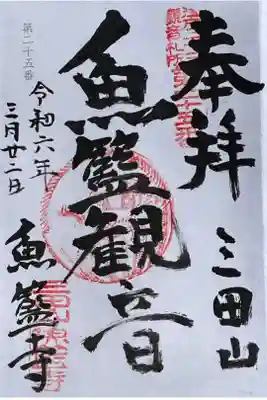 奉拝
三田山
魚籃観音
魚籃寺
令和六年
三月廿二日
第二十五番